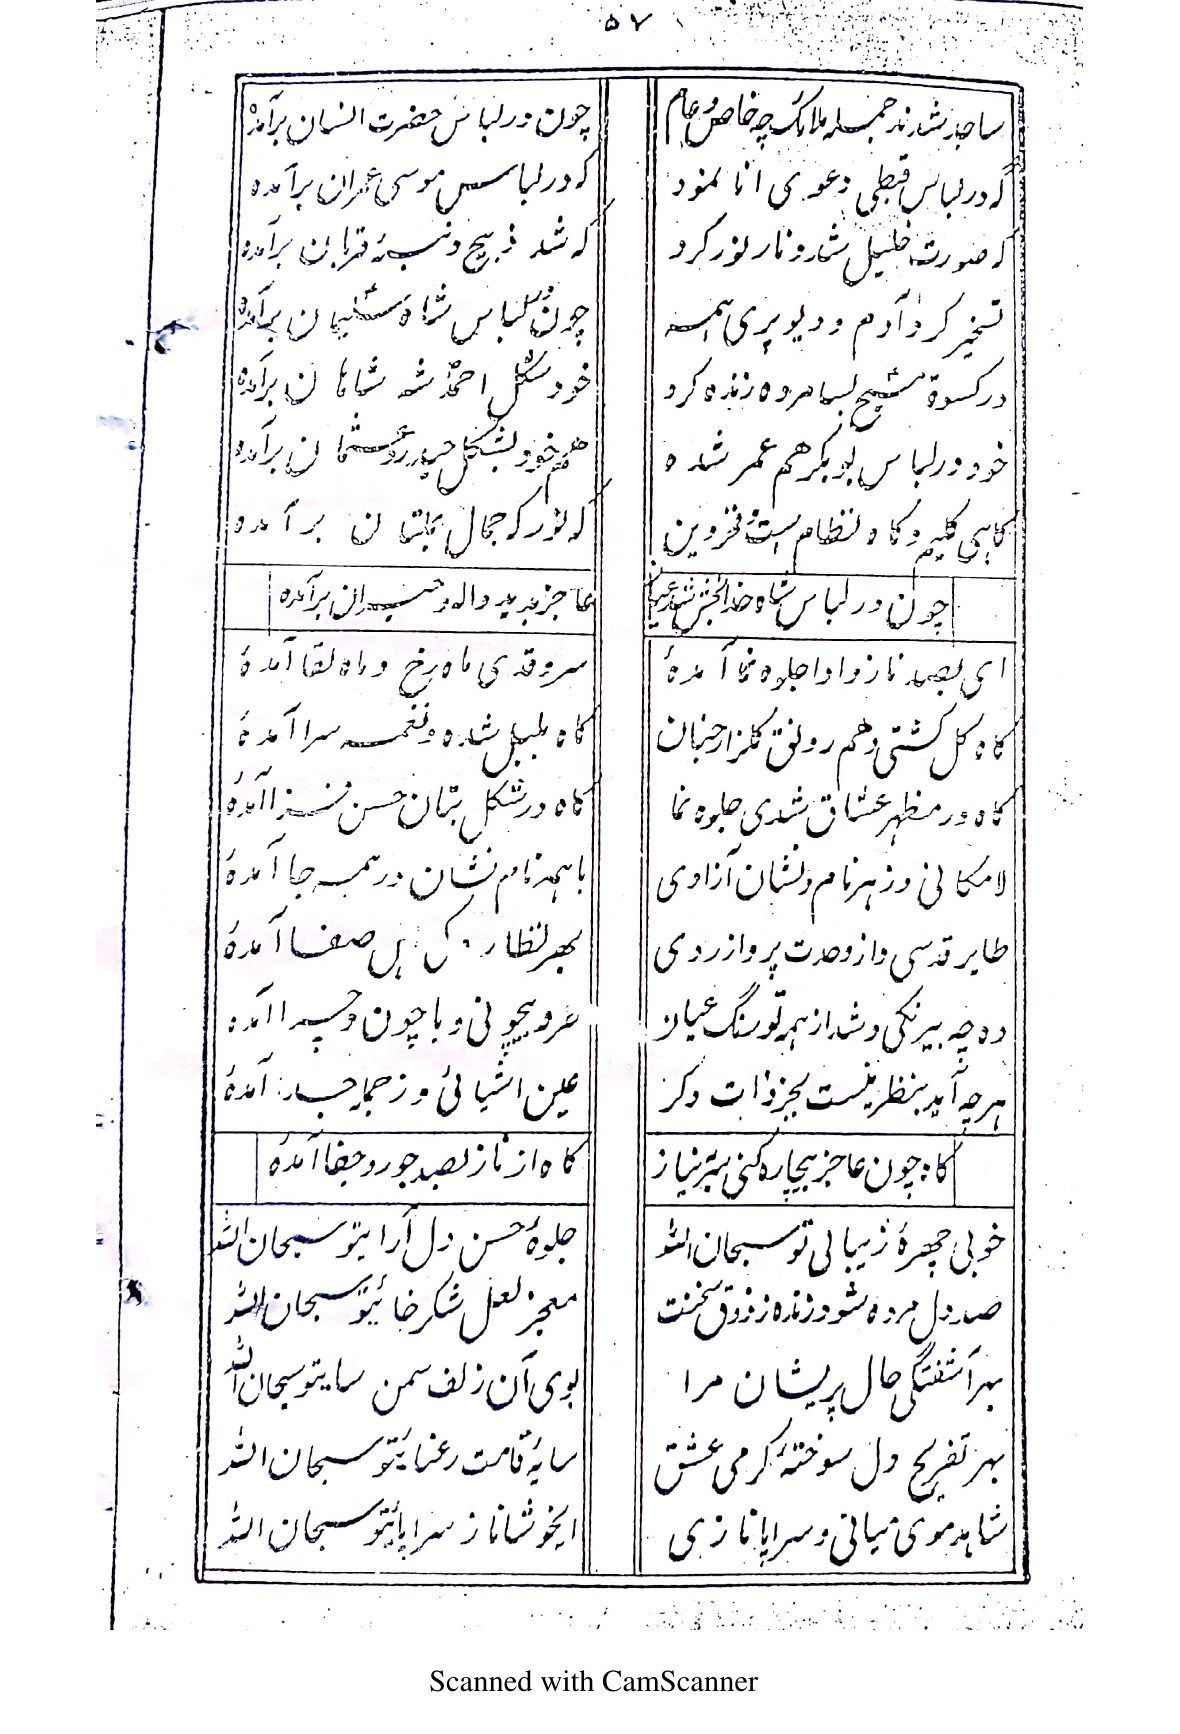 ۵۷
ساجد شدند جمله ملائک چه خاص و عام
چون در لباس حضرت انسان برآمده
که در لباس قبطی دعوی انا نمود
که در لباس موسی عمران برآمده
که صورت خلیل شد و نار نور کرد
که شد ذبیح و دنبهٔ قربان برآمده
تسخیر کرد آدم و دیو پری همه
چون در لباس شاه سلیمان برآمده
در کسوة مسیح بسا مرده زنده کرد
خود شکل احمد شه شاهان برآمده
خود در لباس بوبکر هم عمر شده
هم خود بشکل حیدر و عثمان برآمده
گاهی کلیم و گاه نظام است فخر دین
که نور که جمال بتان برآمده
چون در لباس شاه خدا بخش شد عیان
عاجز بدید واله و حیران برآمده
ای بصد ناز و ادا جلوه نما آمدهٔ
سرو قدی ماه رخ و ماه لقا آمدهٔ
گاه گل گشتی و هم رونق گلزار جنان
گاه بلبل شده و نغمه سرا آمدهٔ
گاه در مظهر عشاق شدی جلوه نما
گاه در شکل بتان حسن فزا آمدهٔ
لامکانی و ز هر نام و نشان آزادی
با همه نام نشان در همه جا آمدهٔ
طایر قدسی و از وحدت پرواز زدی
بهر نظاره صفا آمدهٔ
وه چه بیرنگی و شد از همه تو رنگ عیان
بیچونی و با چون و چرا آمده
هر چه آید بنظر نیست بجز ذات دگر
عین اشیائی و ز جمله جدا آمدهٔ
گاه چون عاجز بیچاره کنی سر نیاز
گاه از ناز بصد جور و جفا آمدهٔ
خوبی چهرهٔ زیبائی تو سبحان الله
جلوهٔ حسن دل آرایتو سبحان الله
صد دل مرده شود زنده ز ذوق سخنت
معجز لعل شکر خائیتو سبحان الله
بهر آشفتگی حال پریشان مرا
بوی آن زلف سمن سایتو سبحان الله
بهر تفریح دل سوختهٔ گرمی عشق
سایهٔ قامت رعنائیتو سبحان الله
شاهد موی میانی و سراپا نازی
ایخوشا ناز سراپائیتو سبحان الله
Scanned with CamScanner